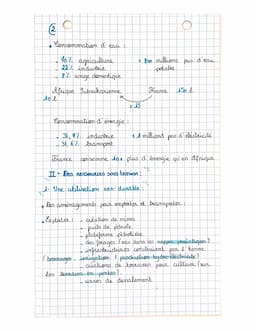 ②
• Consommation d'eau :
- 70% agriculture • 800 millions pas d'eau
- 22% industrie potable
- 8% usage domestique
Afrique Subsaharienne France 150 l
10 l
x 15
Consommation d'énergie :
- 31,8% industrie • 1 milliard pas d'électricité
- 31,6% transport
France consomme 10x plus d'énergie qu'en Afrique
II - Des ressources sous tension :
1- Une utilisation non-durable :
• Des aménagements pour exploiter et transporter :
• Exploiter : - création de mines
- puits de pétrole
- plateforme pétrolière
- des forages (eau dans les nappes phréatiques)
- infrastructures construient par l'homme
(barrages - irrigation / production hydro-électricité)
- créations de terrasses pour cultiver (sur
les terrains en pentes).
- usines de dessalement